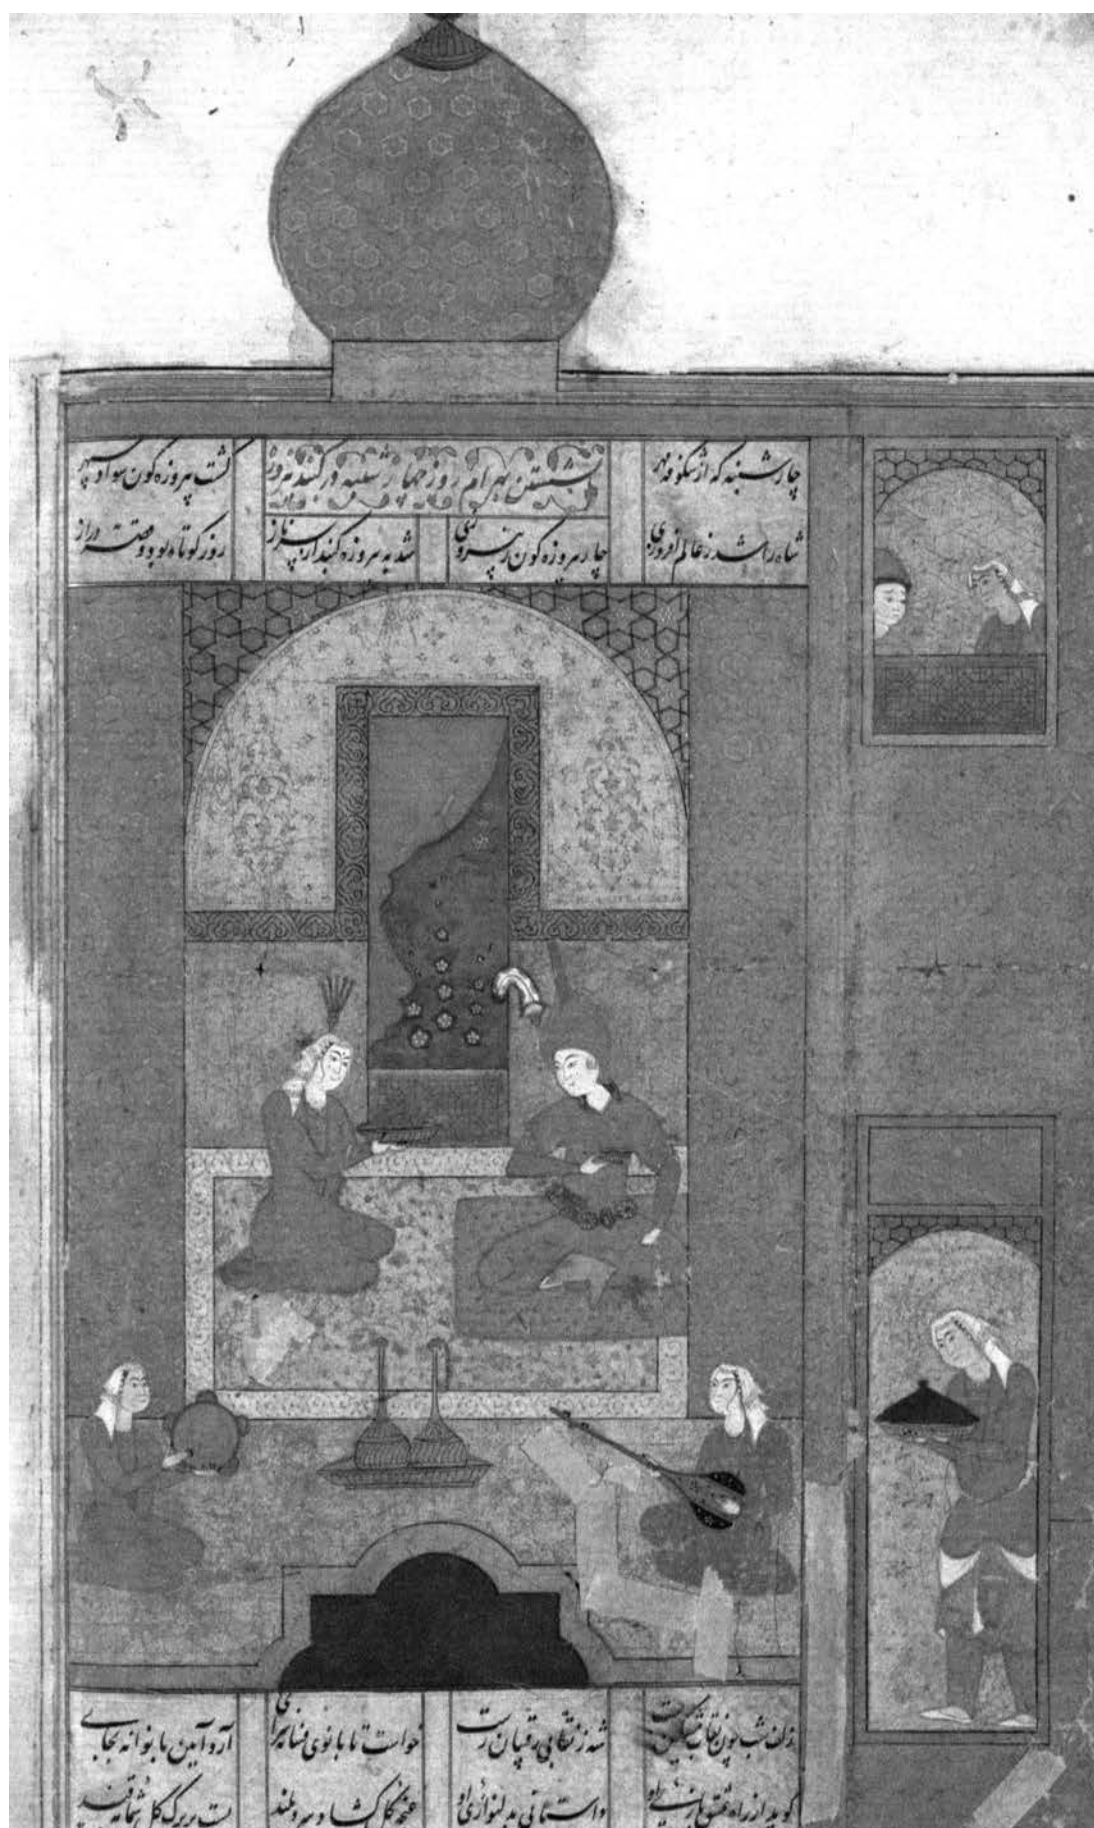 چارشنبه که از شکوفه مهر نشستن بهرام روز چهارشنبه در گنبد پیروزه گشت پیروزه گون سواد سپهر
شاه را شد ز عالم افروزی جامه پیروزه گون ز پیروزی شد به پیروزه گنبد از سر ناز روز کوتاه بود و قصه دراز
زلف شب چون نقاب مشکین بست شه ز نقابی رقیبان رست خواست تا بانوی فسانه سرای آرد آیین بانوانه بجای
گوید از راه عشق بازی او داستانی بدلنوازی او غنچه گل گشاد سرو بلند بست بر برگ گل شمامه قند